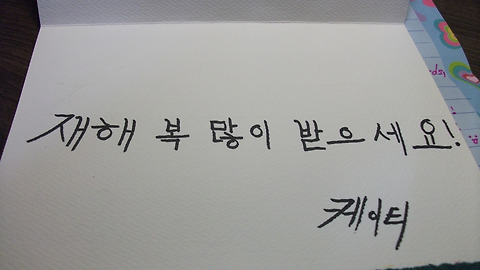 재해 복 많이 받으세요!
케이티